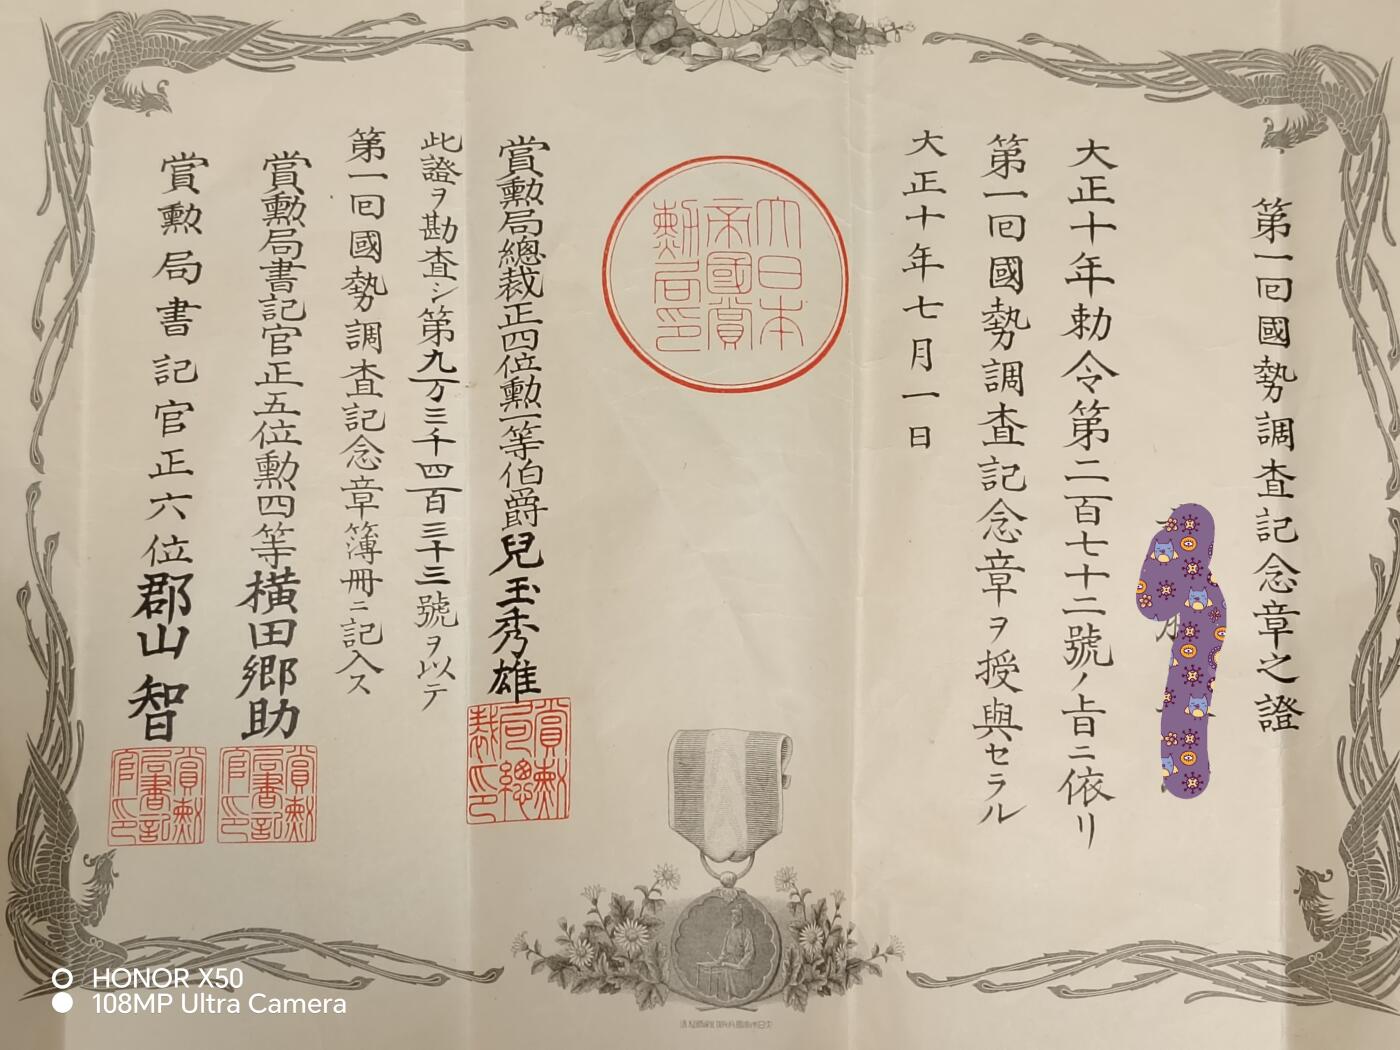 第一回國勢調査記念章之證
大正十年勅令第二百七十二號ノ旨ニ依リ
第一回國勢調査記念章ヲ授與セラル
大正十年七月一日
大日本
帝國賞
勲局印
賞勲局總裁正四位勲一等伯爵兒玉秀雄
賞勲
局總
裁印
此證ヲ勘査シ第九万三千四百三十三號ヲ以テ
第一回國勢調査記念章簿冊ニ記入ス
賞勲局書記官正五位勲四等横田郷助
賞勲
局書記
官印
賞勲局書記官正六位郡山智
賞勲
局書記
官印
HONOR X50
108MP Ultra Camera